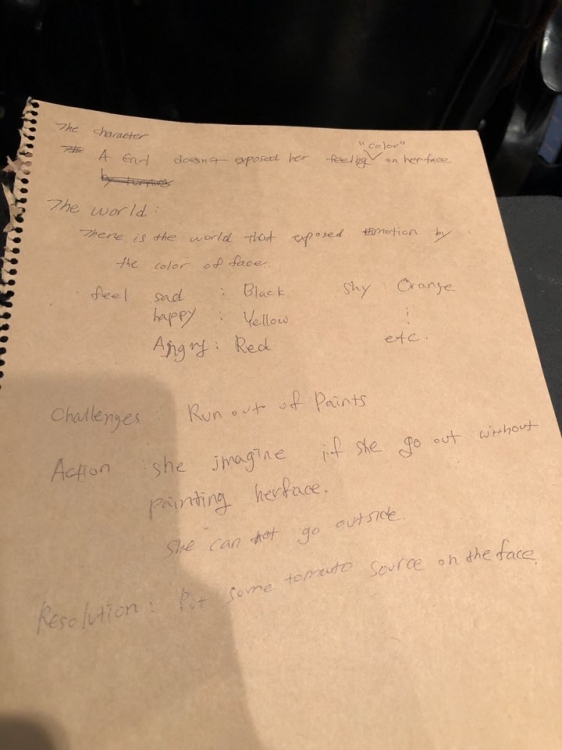 The character
A Girl doesn't exposed her "color" on her face.
The world :
There is the world that exposed emotion by
the color of face.
feel sad : Black shy : Orange
happy : Yellow
Angry : Red etc.
Challenges Run out of Paints
Action she imagine if she go out without
painting her face.
she can not go outside.
Resolution : Put some tomato source on the face.